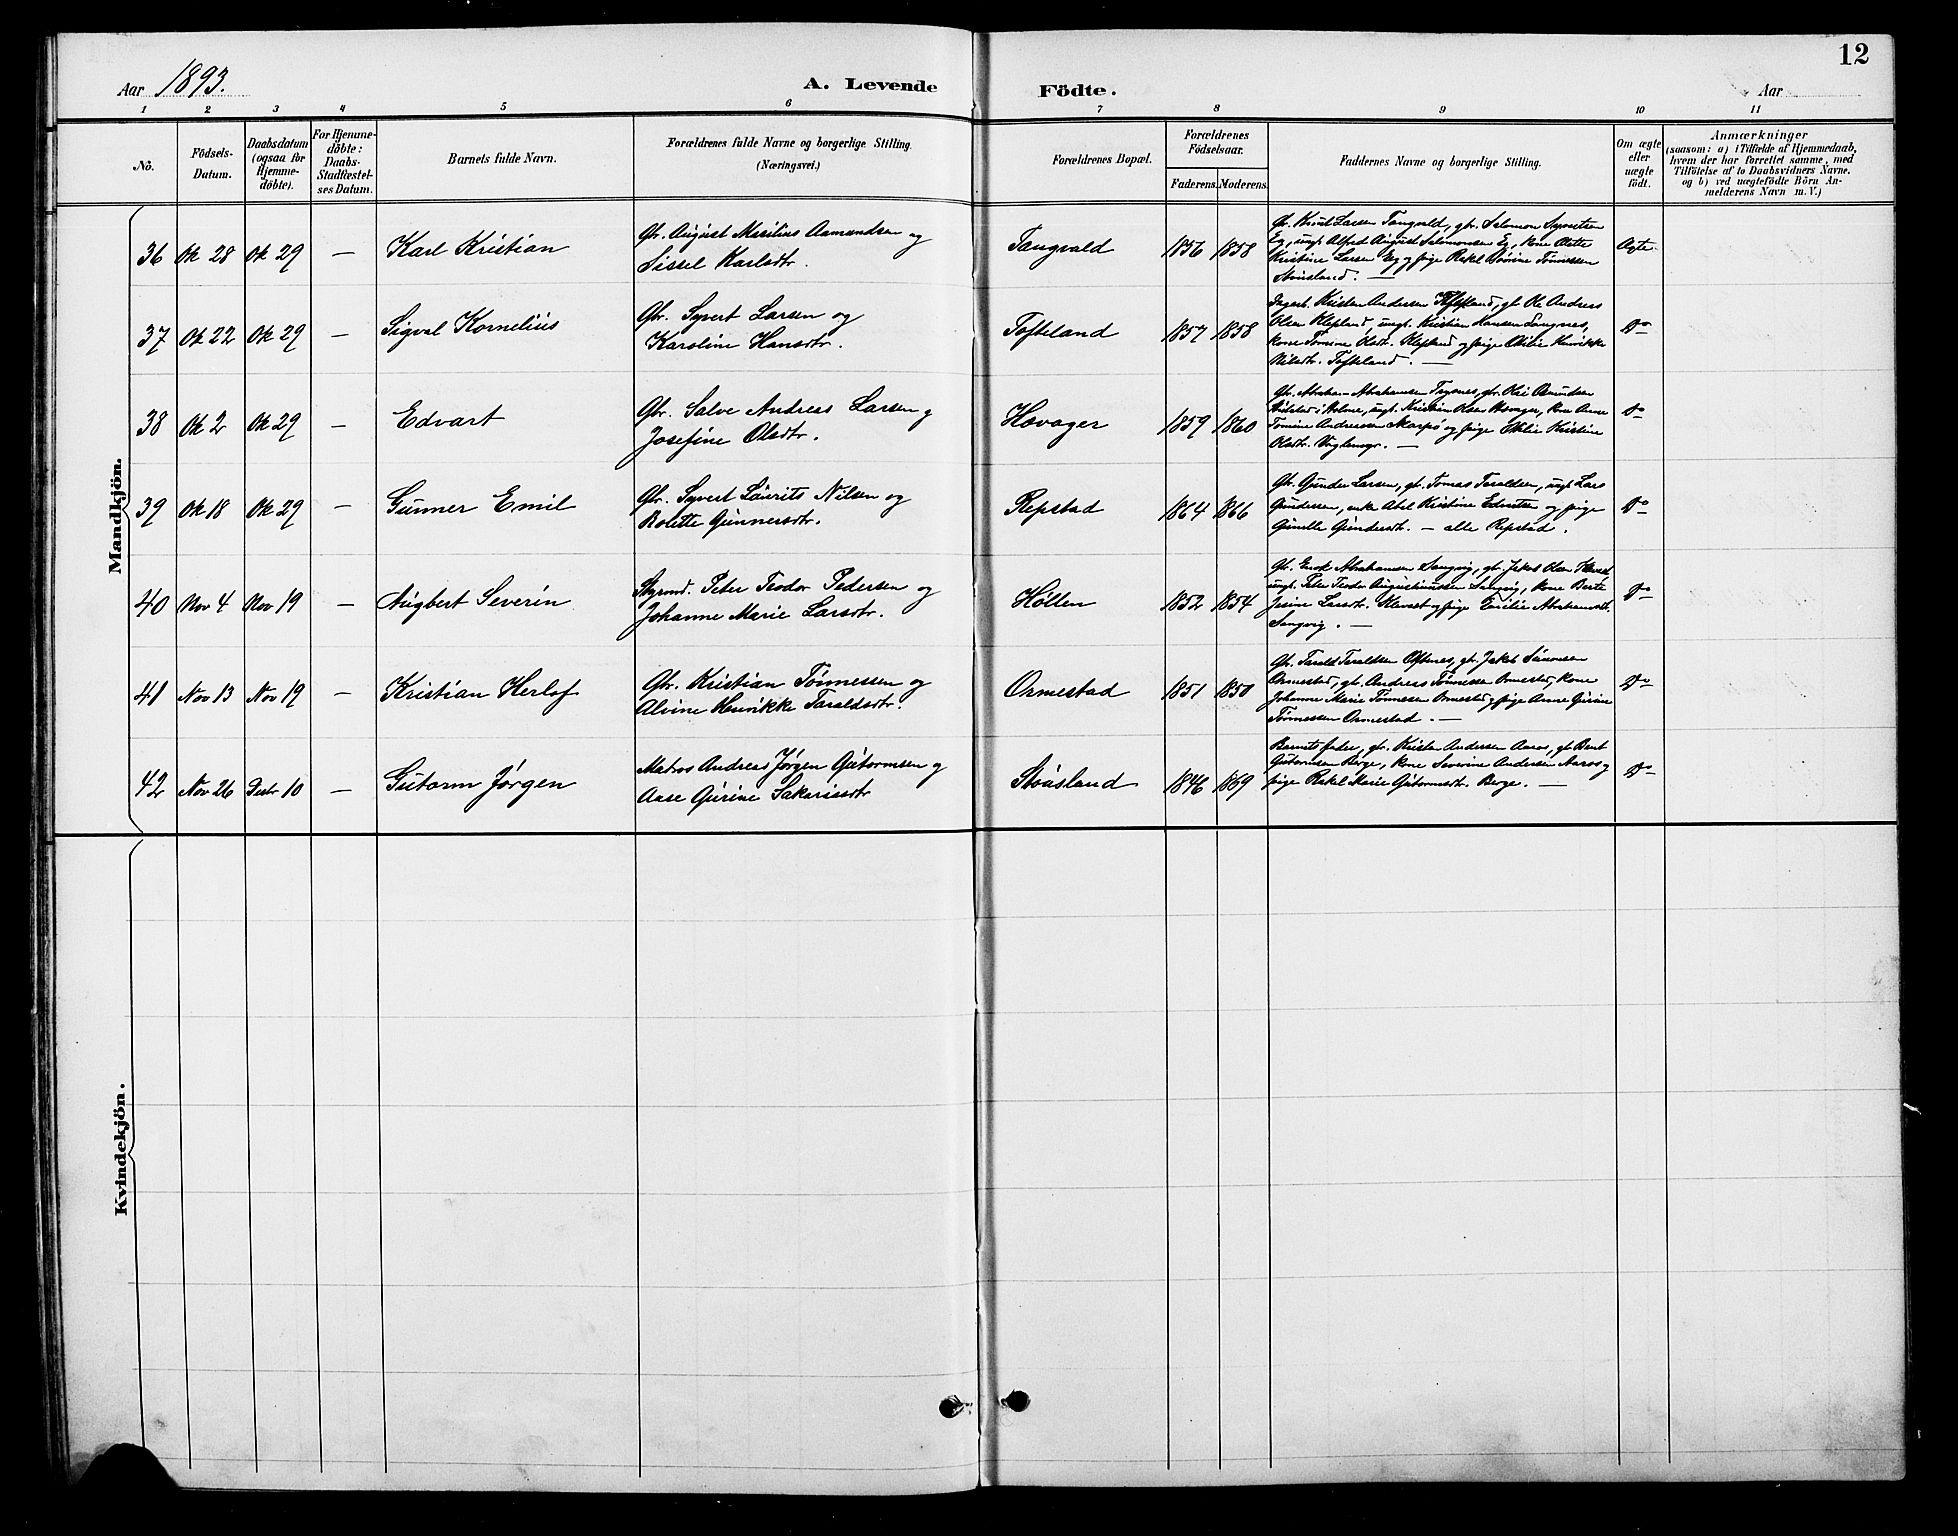 12
Aar 1893.
A. Levende Födte.
Aar
1 2 3 4 5 6 7 8 9 10 11
No.
Födsels-Datum.
Daabsdatum (ogsaa for Hjemme-döbte).
For Hjemme-döbte: Daabs-Stadfæstel-ses Datum.
Barnets fulde Navn.
Forældrenes fulde Navne og borgerlige Stilling.
(Næringsvei.)
Forældrenes Bopæl.
Forældrenes Födselsaar.
Faderens. Moderens.
Faddernes Navne og borgerlige Stilling.
Om ægte eller uægte födt.
Anmærkninger
(saasom: a) i Tilfælde af Hjemmedaab,
hvem der har forrettet samme, med
Tilföielse af to Daabsvidners Navne.
og b) ved uægtefödte Börn An-
melderens Navn m. V.)
Mandkjön.
36 Ok 28 Ok 29 — Karl Kristian
Gbr. August Aamundsen og
Sissel Karlsdtr.
Tangvald 1856 1858
Larsen Tangvald, gbr. Salomon
Eg, ungk. Alfred August Salomonsen Eg, kone
Kristine Larsen Eg og pige Rakel Tønnessen
Ægte.
37 Ok 22 Ok 29 — Sigval Kornelius
Gbr. Syvert Larsen og
Karoline Hansdtr.
Tofteland 1857 1858
Kristen Andersen Tofteland, gbr. Ole Andreas
Olsen Klepland, ungk. Kristian Hansen Langnes,
kone Tomine Olsdtr. Klepland og pige
Nilsdtr. Tofteland. —
Do
38 Ok 2 Ok 29 — Edvart
Gbr. Salve Andreas Larsen og
Josefine Olsdtr.
Høvager 1859 1860
Gbr. Abraham Abrahamsen
i Holme, ungk. Kristian Olsen Høvager, kone Anne
Tomine Andreassen og pige Kristine
Olsdtr. —
Do
39 Ok 18 Ok 29 — Gunner Emil
Gbr. Syvert Laurits Nilsen og
Bolette Gunnersdtr.
Repstad 1864 1866
Gbr. Gunder Larsen, gbr. Tomas Taraldsen, ungk. Lars
Gundersen, enke Abel Kristine og pige
Gunelle Gundersdtr. — alle Repstad.
Do
40 Nov 4 Nov 19 — Augbert Severin
Styrmd. Peter Teodor Pedersen og
Johanne Marie Larsdtr.
Høllen 1852 1854
Gbr. Enok Abrahamsen Langvig, gbr. Jakob Olsen
ungk. Peter Teodor Augustinussen Langvig, kone Berte
Jesine Larsdtr. og pige Emilie Abrahamsdtr.
Langvig. —
Do
41 Nov 13 Nov 19 — Kristian Herlof
Gbr. Kristian Tønnessen og
Alvine Henrikke Taraldsdtr.
Ormestad 1851 1850
Gbr. Tarald Taraldsen Oftenes, gbr. Jakob Simonsen
Ormestad, gbr. Andreas Tønnessen Ormestad, kone
Johanne Marie Tønnessen Ormestad og pige Anne Gurine
Tønnessen Ormestad. —
Do
42 Nov 26 Decbr 10 — Gutorm Jørgen
Matros Andreas Jørgen Gutormsen og
Aase Gurine Sakariasdtr
Stusland 1846 1869
Barnets fader, gbr. Kristen Andersen Aaros, gbr. Bent
Gutormsen Berge, kone Severine Andersen Aaros og
pige Rakel Marie Gutormsdtr. Berge. —
Do
Kvindekjön.